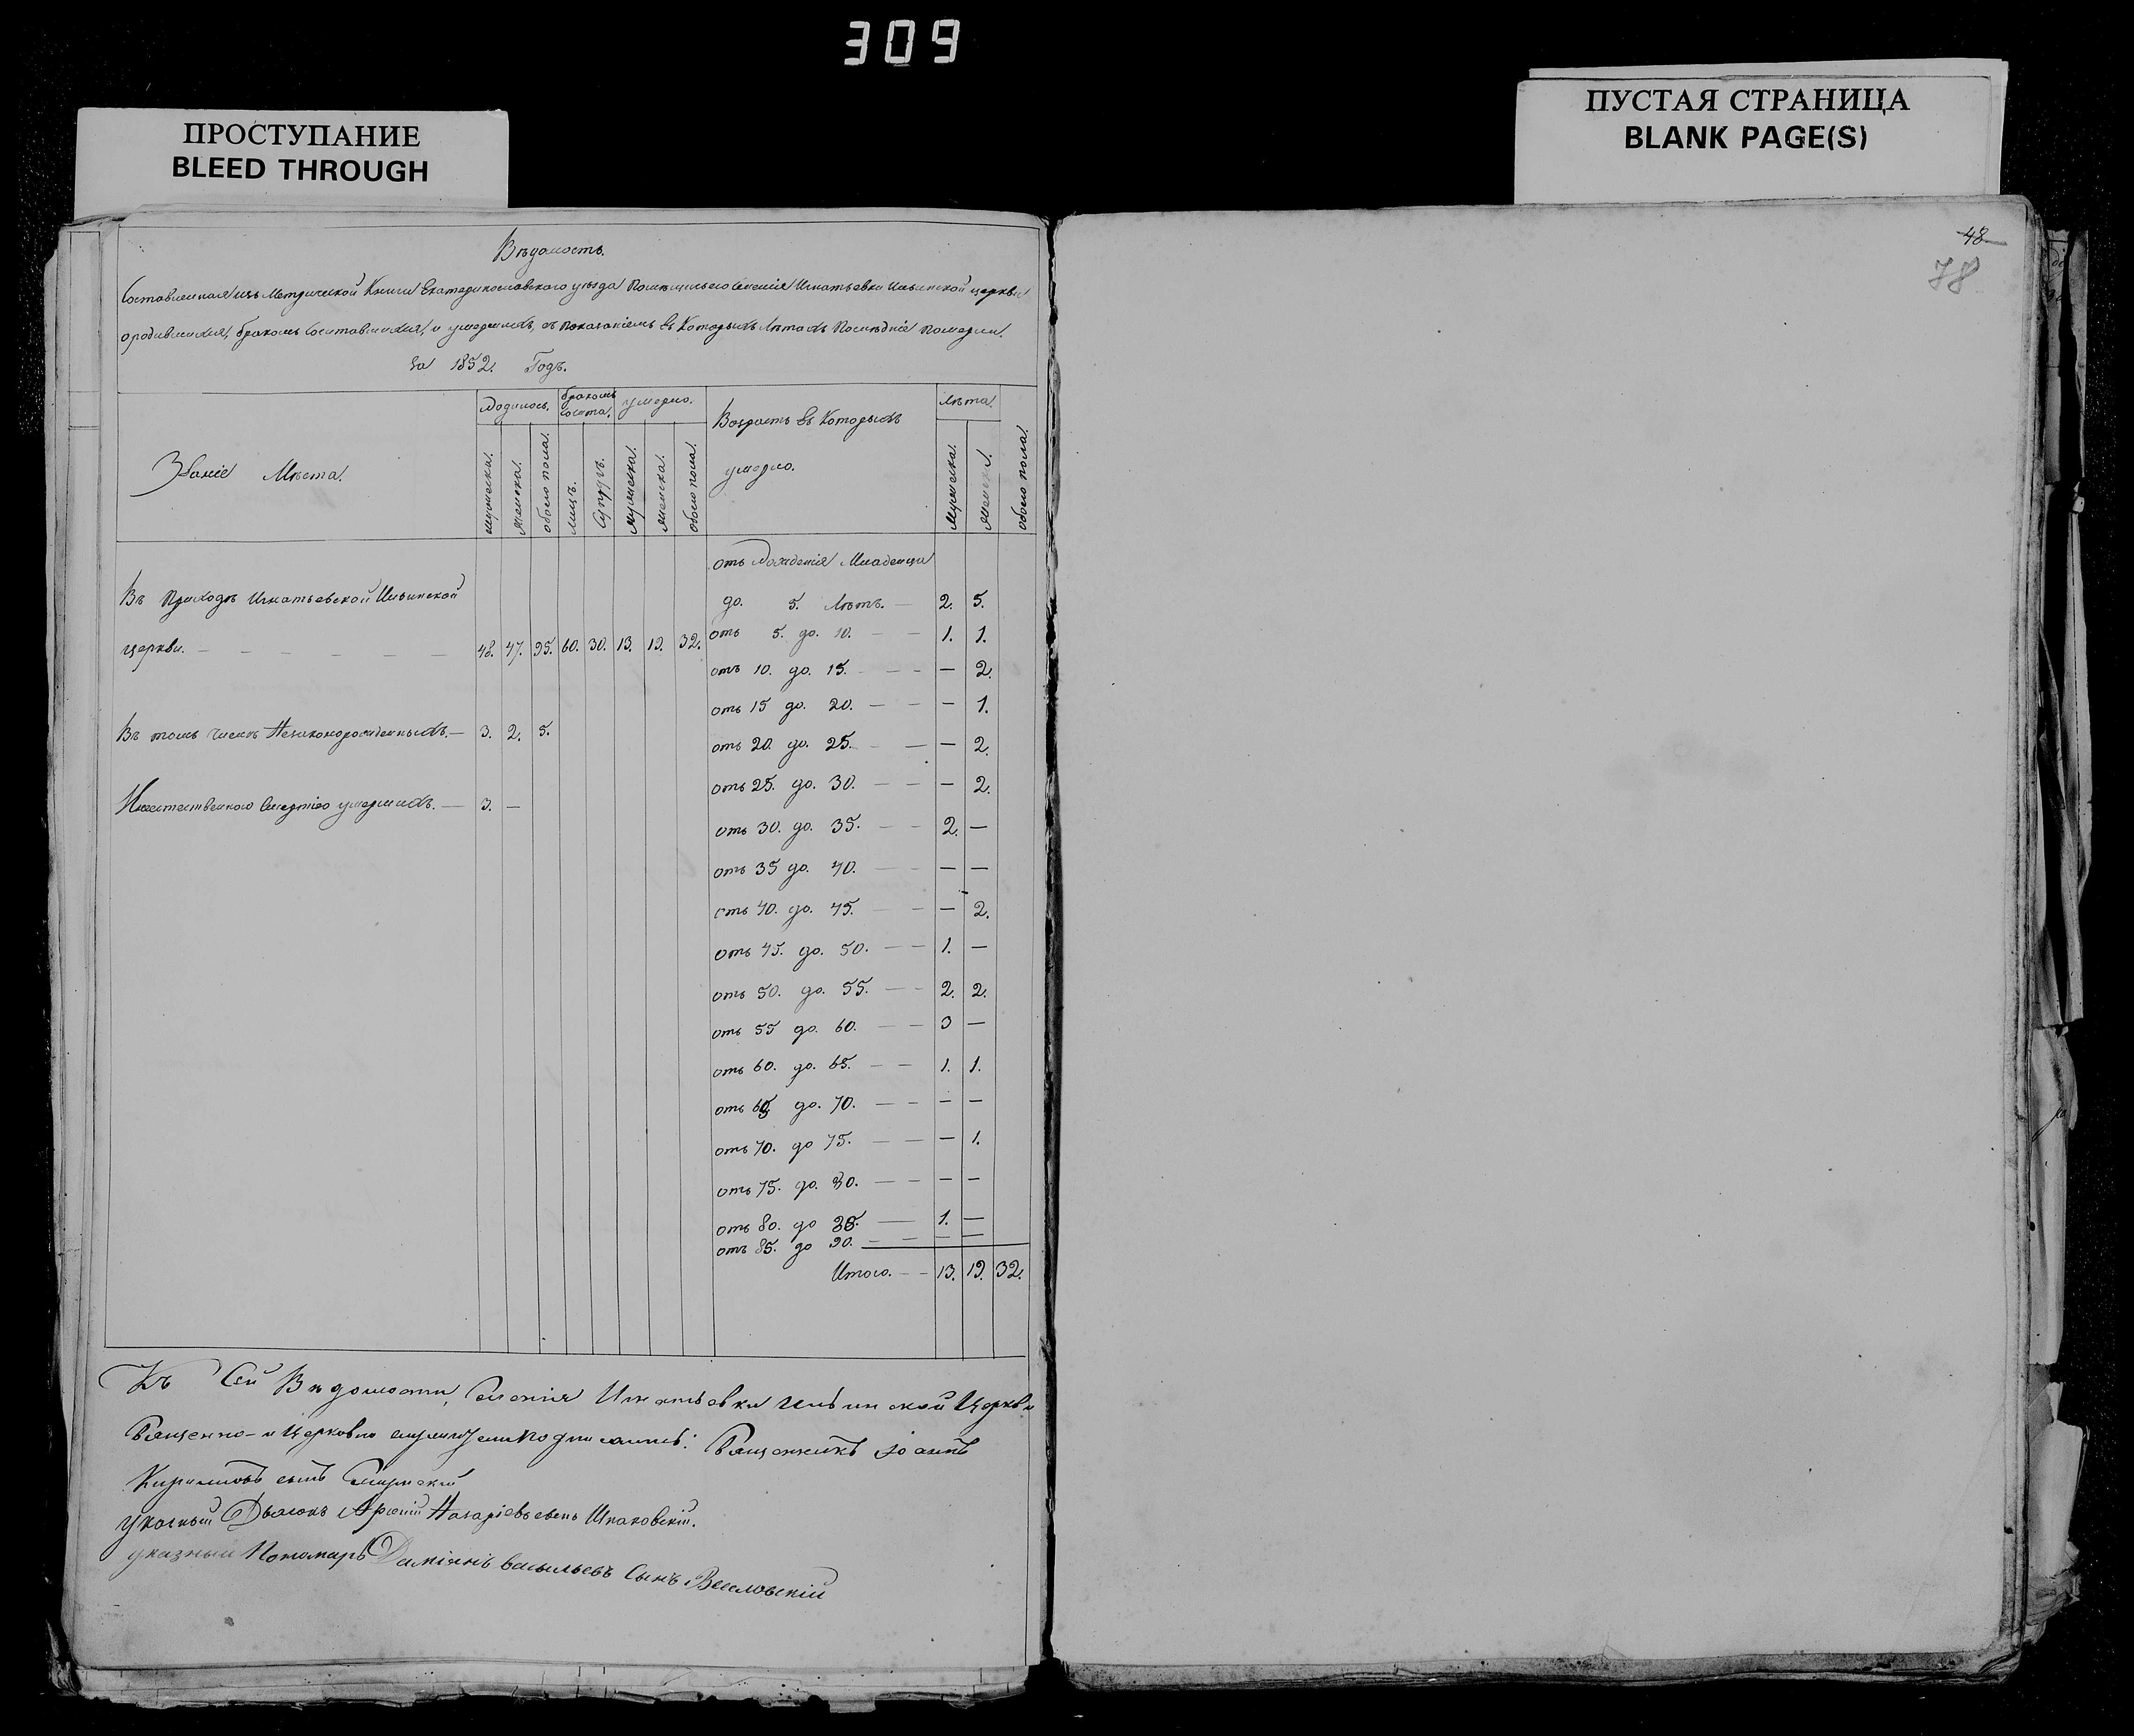 309
ПРОСТУПАНИЕ
BLEED THROUGH
ПУСТАЯ СТРАНИЦА
BLANK PAGE(S)
48
78
Вѣдомость.
Составленная изъ Метрической Книги Екатеринославского уѣзда Помѣщичьего Селенія Игнатьевки Ильинской церкви
ородившихся, бракомъ Сочитавшихся, и умершихъ, съ показаніемъ въ Которыхъ Лѣтахъ Послѣдніе Померли.
За 1852. Годъ.
Званіе Мѣста.
Родилось.
бракомъ сочита.
умерло.
Возрастъ въ Которыхъ умерло.
Лѣта.
мужеска. женска. обоего пола. лицъ. супруг. мужеска. женска. обоего пола.
мужеска. женска. обоего пола.
Въ Приходѣ Игнатьевской Ильинской
церкви. — — — — — — 48. 47. 95. 60. 30. 13. 19. 32.
Въ томъ числѣ Незаконорожденныхъ. — 3. 2. 5.
Неестественною Смертію умершихъ. — 3. —
отъ Рожденія Младенца
до. 5. Лѣтъ. — 2. 5.
отъ 5. до. 10. — — 1. 1.
отъ 10. до. 15. — — — 2.
отъ 15 до. 20. — — — 1.
отъ 20. до. 25. — — — 2.
отъ 25. до. 30. — — — 2.
отъ 30. до. 35. — — 2. —
отъ 35 до. 40. — — — —
отъ 40. до. 45. — — — 2.
отъ 45. до. 50. — — 1. —
отъ 50. до. 55. — — 2. 2.
отъ 55 до. 60. — — 3 —
отъ 60. до. 65. — — 1. 1.
отъ 65 до. 70. — — — —
отъ 70. до 75. — — — 1.
отъ 75. до. 80. — — — —
отъ 80. до 85. — 1. —
отъ 85. до 90. — — — —
Итого. — — 13. 19. 32.
Къ Сей Вѣдомости, Селенія Игнатьевки Ильинской Церкви
Священно-и Церковно служители подписались: Священникъ Іоаннъ
Кирилловъ сынъ
указный Дьячокъ Арсеній Назаріевъ сынъ Шпаковскій.
указный Пономарь Даміянъ Васильевъ Сынъ Веселовскій